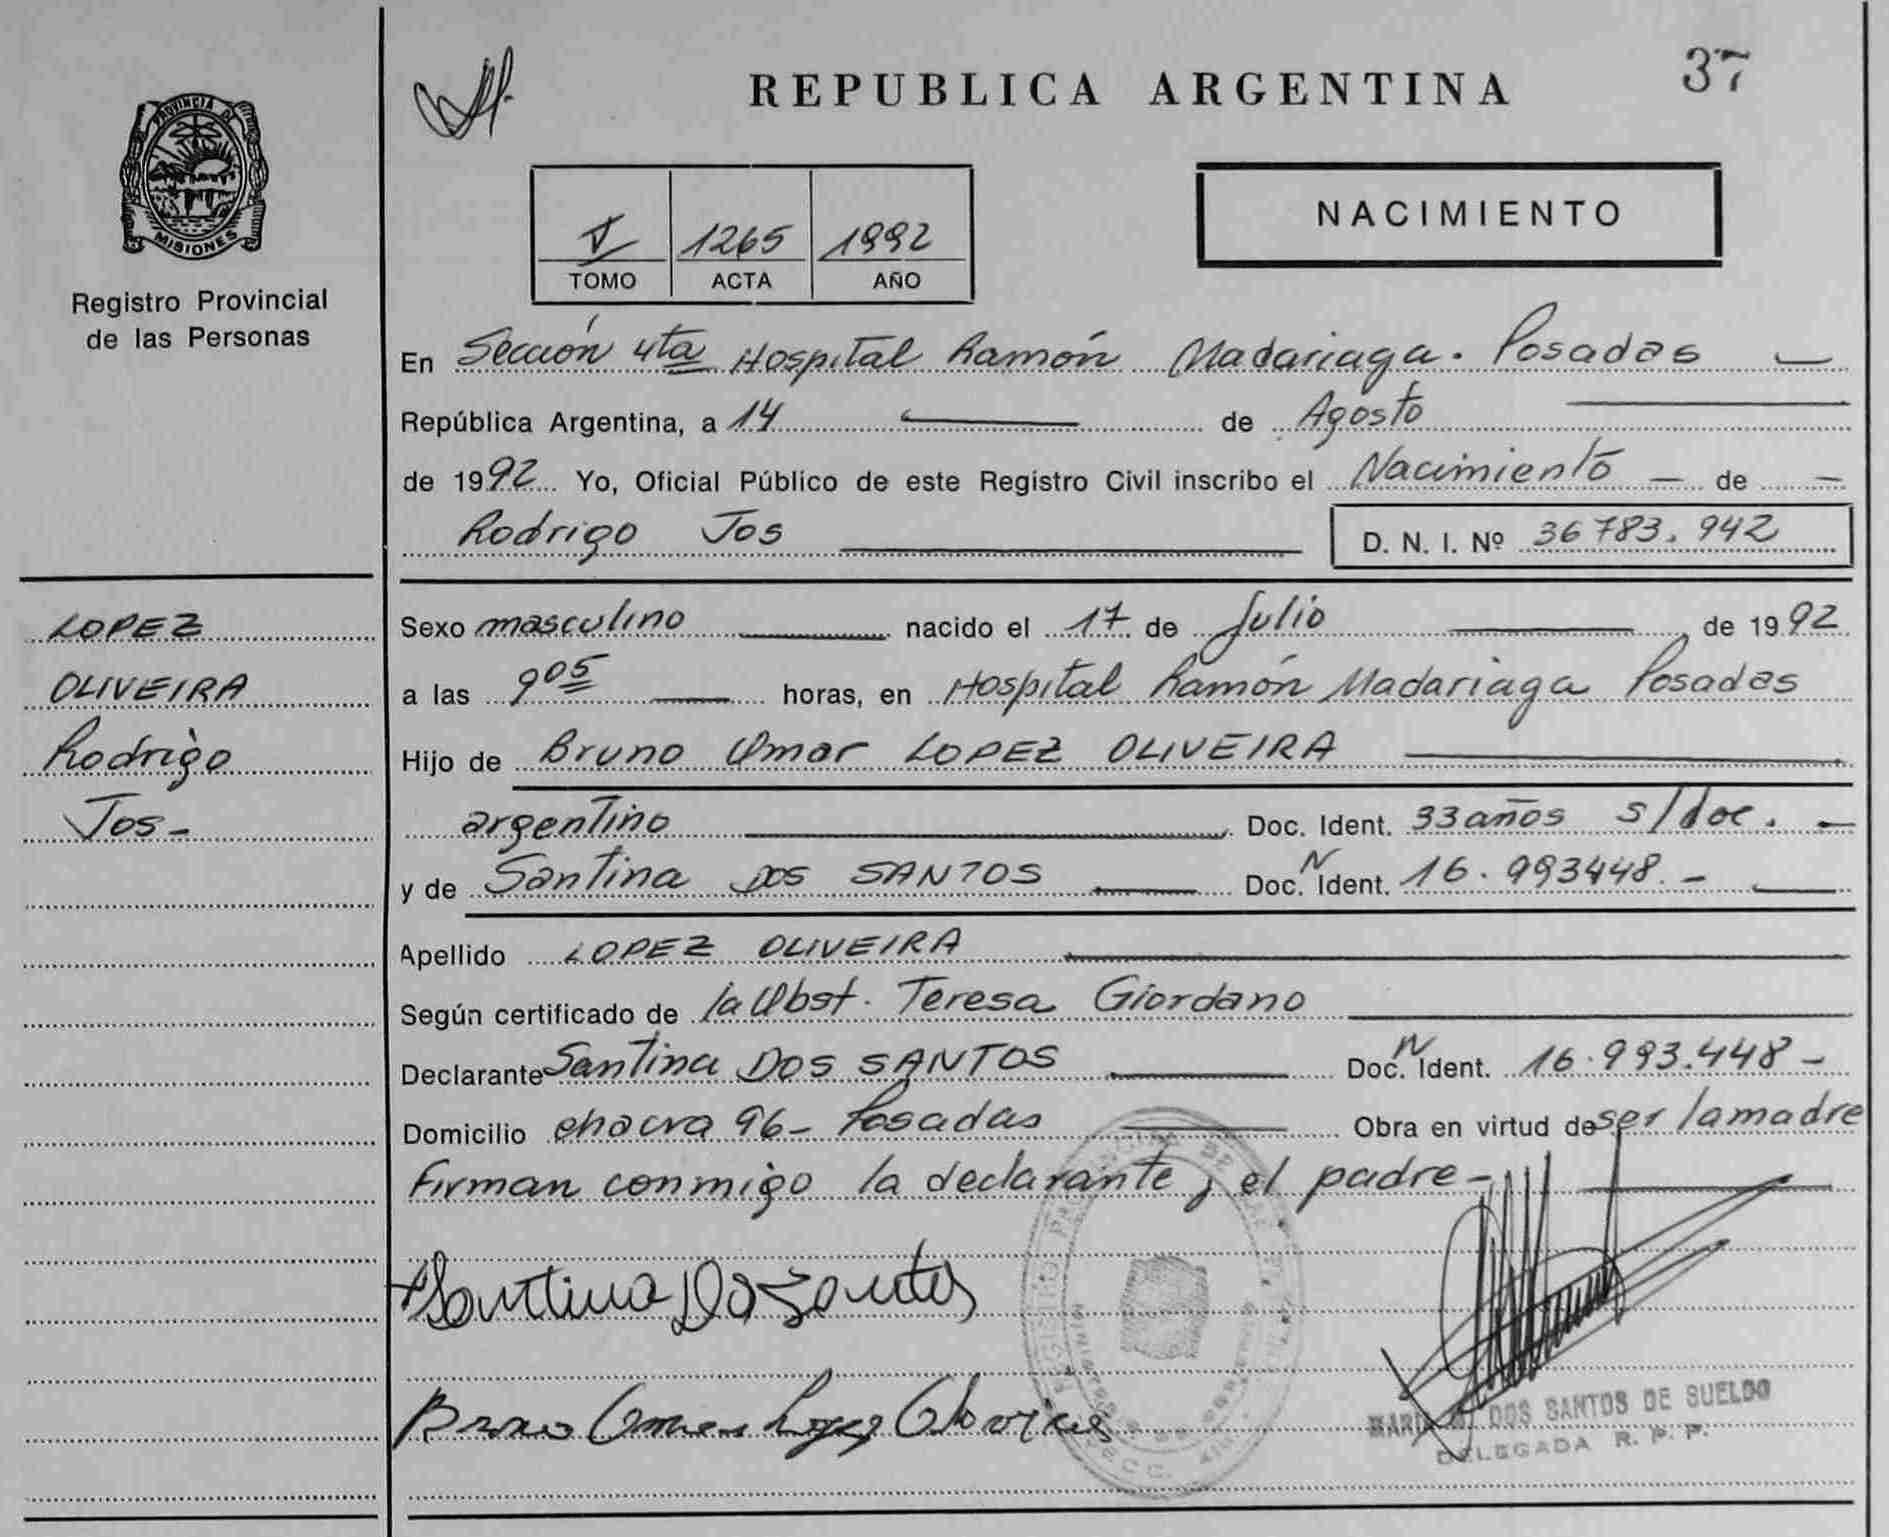 37
REPUBLICA ARGENTINA
PROVINCIA DE
MISIONES
Registro Provincial
de las Personas
NACIMIENTO
1265 1992
TOMO ACTA AÑO
En Sección 4ta Hospital Ramón Madariaga. Posadas —
República Argentina, a 14 — de Agosto —
de 1992 Yo, Oficial Público de este Registro Civil inscribo el Nacimiento — de —
Rodrigo Jos — D. N. I. Nº 36783.942
LOPEZ
OLIVEIRA
Rodrigo
Jos-
Sexo masculino — nacido el 17 de Julio — de 1992
a las 9 05 — horas, en Hospital Ramón Madariaga Posadas
Hijo de Bruno Omar LOPEZ OLIVEIRA —
argentino — Doc. Ident. 33 años s/doc. —
y de Santina DOS SANTOS — Doc. N Ident. 16.993448. —
Apellido LOPEZ OLIVEIRA —
Según certificado de la Obst. Teresa Giordano —
Declarante Santina DOS SANTOS — Doc. N Ident. 16.993.448 -
Domicilio chacra 96- Posadas — Obra en virtud de ser la madre
Firman conmigo la declarante y el padre- —
Santina Do Santos
Bruno Omar Lopez Oliveira
DOS SANTOS DE SUELDO
DELEGADA R. P. P.